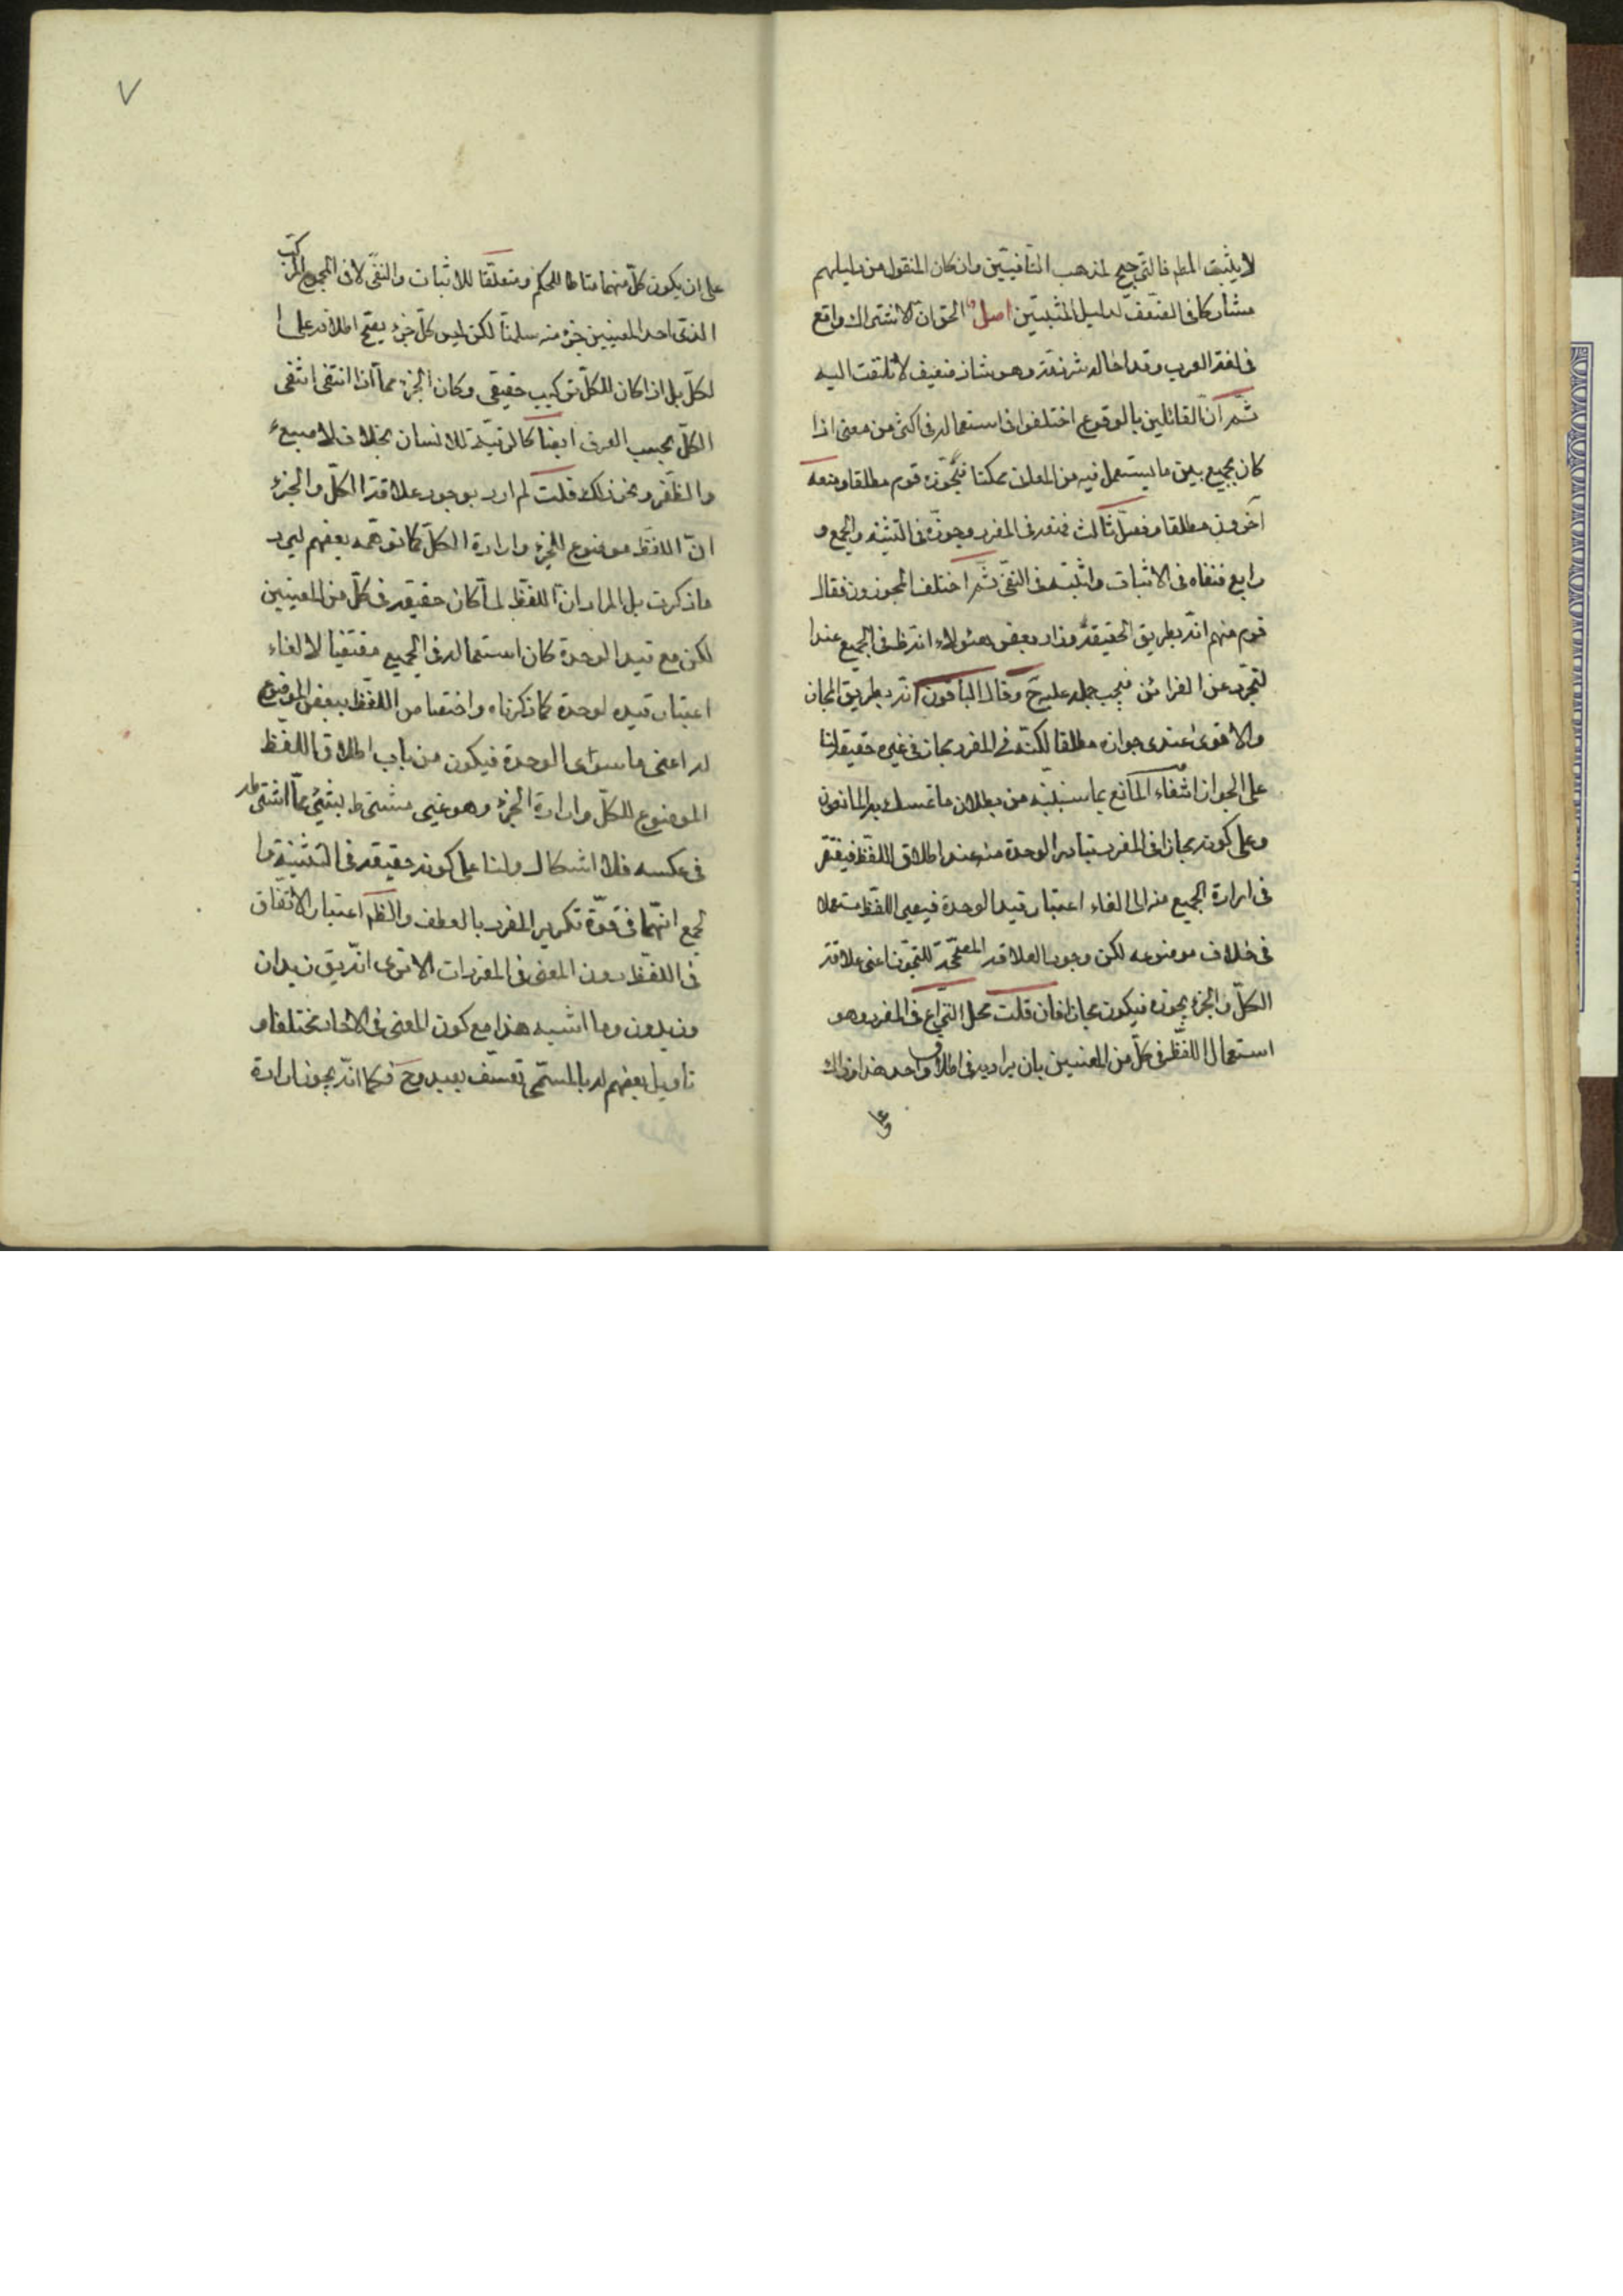 لا يثبت المط فالترجيح لمذهب النافيين وان كان المنقول من دليلهم
مشاركا فى الضعف لدليل المثبتين اصل الحق ان الاشتراك واقع
فى لغة العرب وقد احاله شرذمة وهو شاذ ضعيف لا يلتفت اليه
ثم ان القائلين بالوقوع اختلفوا فى استعماله فى اكثر من معنى اذا
كان يجمع بين ما يستعمل فيه من المعان ممكنا فجوزه قوم مطلقا ومنعه
آخرون مطلقا وفصل ثالث فمنعه فى المفرد وجوزه فى التثنيه والجمع و
رابع فنفاه فى الاثبات واثبته فى النفى ثم اختلف المجوزون فقال
قوم منهم انه بطريق الحقيقة وزاد بعض هؤلاء انه ظ فى الجميع عند ا
لتجرد عن القرائن فيجب حمله عليه ح وقال الباقون انه بطريق المجاز
والاقوى عندى جوازه مطلقا لكنه فى المفرد مجاز فى غيره حقيقة لنا
على الجواز انتفاء المانع بما سنبينه من بطلان ما تمسك به المانعون
وعلى كونه مجازا فى المفرد تبادر الوحدة منه عند اطلاق اللفظ فيفتقر
فى ارادة الجميع منه الى الغاء اعتبار قيد الوحدة فيصير اللفظ مستعملا
فى خلاف موضوعه لكن وجود العلاقه المصححة للتجوز اعنى علاقة
الكل والجزء يجوزه فيكون مجازا فان قلت محل النزاع فى المفرد وهو
استعمال اللفظ فى كل من المعنيين بان يراد به فى اطلاق واحد هذا وذاك
على
٧
على ان يكون كل منهما مناطا للحكم ومتعلقا للاثبات والنفى لا فى المجموع المركب
الذى احد المعنيين جزء منه سلمنا لكن ليس كل جزء يصح اطلاقه على ا
لكل بل اذا كان للكل تركيب حقيقى وكان الجزء مما اذا انتفى انتفى
الكل بحسب العرف ايضا كالرقبة للانسان بخلاف الاصبع
والظفر ونحو ذلك قلت لم ارد بوجود علاقة الكل والجزء
ان اللفظ موضوع للجزء وارادة الكل كما توهمه بعضهم ليرد
ما ذكرت بل المراد ان اللفظ لما كان حقيقه فى كل من المعنيين
لكن مع قيد الوحدة كان استعماله فى الجميع مقتضيا لالغاء
اعتبار قيد لوحدة كما ذكرناه واختصاص اللفظ ببعض الموضوع
له اعنى ما سوى الوحدة فيكون من باب اطلاق اللفظ
الموضوع للكل وارادة الجزء وهو غير مشترط بشئ مما اشترط
فى عكسه فلا اشكال ولنا على كونه حقيقه فى التثنية وا
لجمع انهما فى قوة تكرير المفرد بالعطف والظ اعتبار الاتفاق
فى اللفظ دون المعنى فى المفردات الا ترى انه يق زيدان
وزيدون وما اشبه هذا مع كون المعنى فى الاحاد مختلفا و
تاويل بعضهم له بالمسمى تعسف بعيد وح فكما انه يجوز ارادة